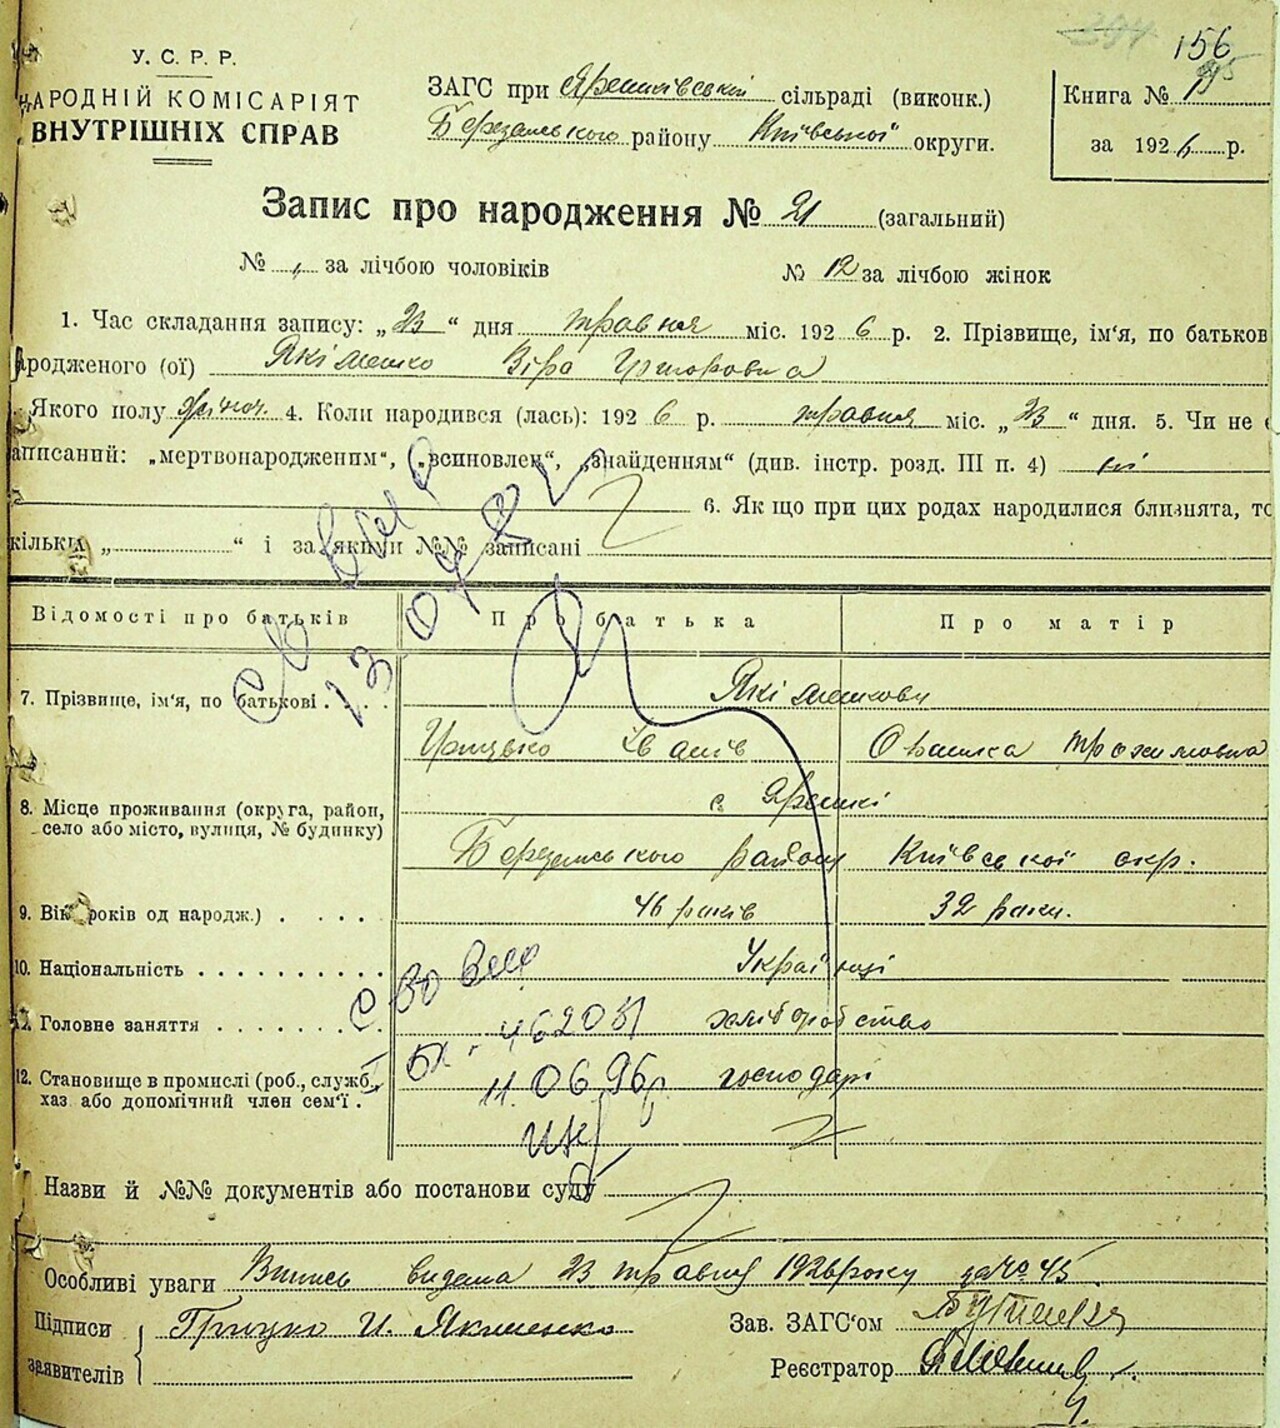 156
У. С. Р. Р.
НАРОДНІЙ КОМІСАРІЯТ
ВНУТРІШНІХ СПРАВ
ЗАГС при Ярешківській сільраді (виконк.)
Березанського району Київської округи.
Книга №
за 1926 р.
Запис про народження № 21 (загальний)
№ за лічбою чоловіків № 12 за лічбою жінок
1. Час складання запису: „23“ дня травня міс. 1926 р. 2. Прізвище, ім'я, по батьков
ародженого (ої) Якіменко Віра
Якого полу жіноч. 4. Коли народився (лась): 1926 р. травня міс. „23“ дня. 5. Чи не
аписаний: „мертвонародженим“, („всиновлен“, „знайденням“ (див. інстр. розд. III п. 4) ні
6. Як що при цих родах народилися близнята, то
кільки „ “ і за якими №№ записані
Відомості про батьків Про батька Про матір
7. Прізвище, ім'я, по батькові . . . . Якіменкови
Грицько Іванів
8. Місце проживання (округа, район,
село або місто, вулиця, № будинку)
с. Ярешкі
Березанського району Київської окр.
9. Вік років од народж.) . . . . 46 років 32 роки.
10. Національність . . . . . . . . . . Українці
11. Головне заняття . . . . . . . . хліборобство
12. Становище в промислі (роб., службˮ,
хаз або допомічний член сем'ї . господарі
11.06.96р.
Назви й №№ документів або постанови суду
Особливі уваги Випись видана 23 травня 1926 року за № 45.
Підписи
заявителів
Грицко И. Якименко
Зав. ЗАГС'ом
Реєстратор